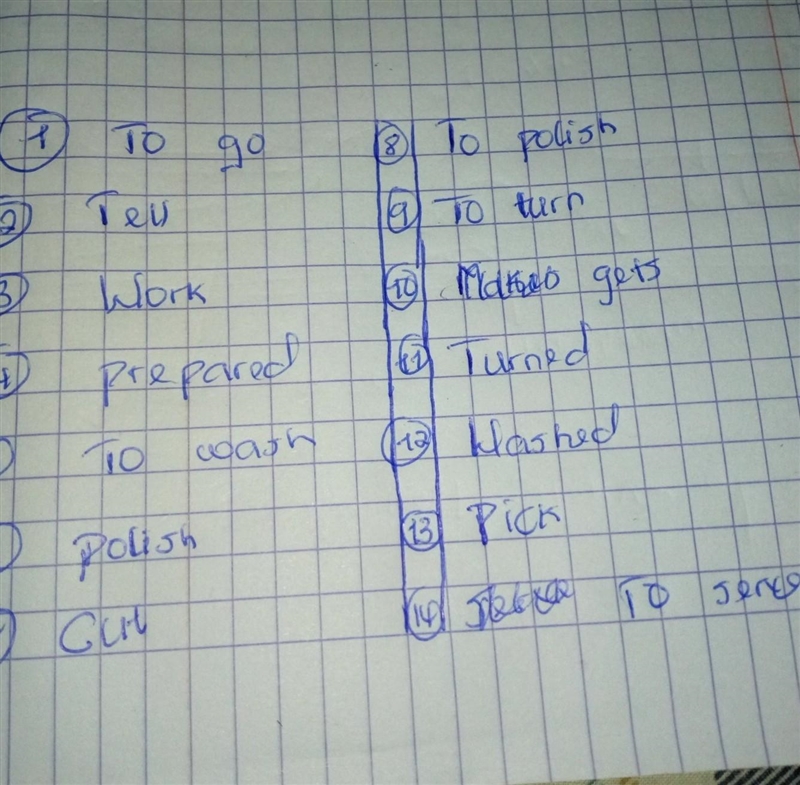 1 To go
2 Tell
3 Work
4 prepared
To wash
polish
Cut
8 To polish
9 To turn
10 gets
11 Turned
12 Washed
13 Pick
14 To serve